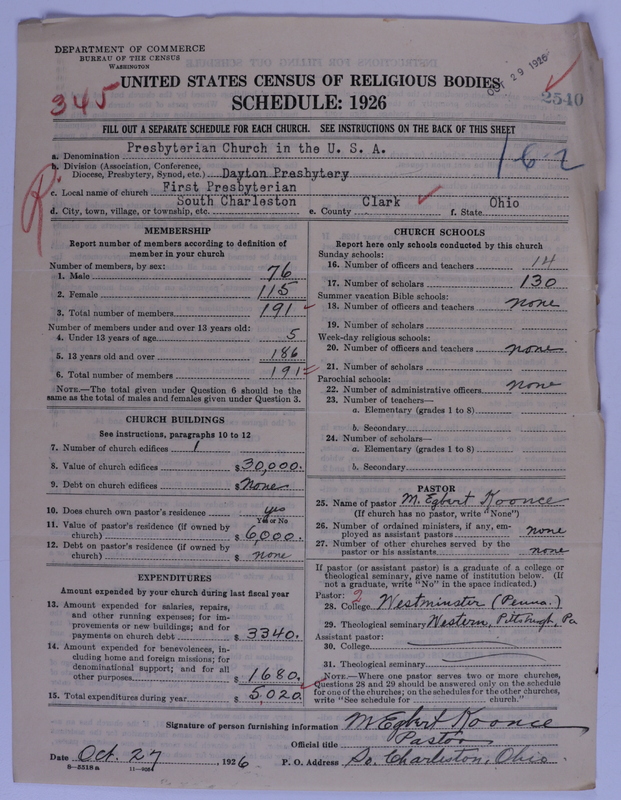 DEPARTMENT OF COMMERCE
BUREAU OF THE CENSUS
WASHINGTON
OCT 29 1926
UNITED STATES CENSUS OF RELIGIOUS BODIES
345
SCHEDULE: 1926
2540
FILL OUT A SEPARATE SCHEDULE FOR EACH CHURCH. SEE INSTRUCTIONS ON THE BACK OF THIS SHEET
162
a. Denomination Presbyterian Church in the U. S. A.
b. Division (Association, Conference,
Diocese, Presbytery, Synod, etc.) Dayton Presbytery
R.
c. Local name of church First Presbyterian
d. City, town, village, or township, etc. South Charleston e. County Clark f. State Ohio
MEMBERSHIP
Report number of members according to definition of
member in your church
Number of members, by sex:
1. Male 76
2. Female 115
3. Total number of members 191
Number of members under and over 13 years old:
4. Under 13 years of age 5
5. 13 years old and over 186
6. Total number of members 191
NOTE.—The total given under Question 6 should be the
same as the total of males and females given under Question 3.
CHURCH BUILDINGS
See instructions, paragraphs 10 to 12
7. Number of church edifices 1
8. Value of church edifices $30,000.
9. Debt on church edifices $None
10. Does church own pastor's residence yes
Yes or No
11. Value of pastor's residence (if owned by
church) $6,000.
12. Debt on pastor's residence (if owned by
church) $ none
EXPENDITURES
Amount expended by your church during last fiscal year
13. Amount expended for salaries, repairs,
and other running expenses; for im-
provements or new buildings; and for
payments on church debt $3340.
14. Amount expended for benevolences, in-
cluding home and foreign missions; for
denominational support; and for all
other purposes $1680.
15. Total expenditures during year $5,020.
CHURCH SCHOOLS
Report here only schools conducted by this church
Sunday schools:
16. Number of officers and teachers 14
17. Number of scholars 130
Summer vacation Bible schools:
18. Number of officers and teachers none
19. Number of scholars
Week-day religious schools:
20. Number of officers and teachers none
21. Number of scholars
Parochial schools:
22. Number of administrative officers none
23. Number of teachers—
a. Elementary (grades 1 to 8)
b. Secondary
24. Number of scholars—
a. Elementary (grades 1 to 8)
b. Secondary
PASTOR
25. Name of pastor M. Egbert Koonce
(If church has no pastor, write "None")
26. Number of ordained ministers, if any, em-
ployed as assistant pastors none
27. Number of other churches served by the
pastor or his assistants none
If pastor (or assistant pastor) is a graduate of a college or
theological seminary, give name of institution below. (If
not a graduate, write "No" in the space indicated.)
Pastor: 2
28. College Westminster (Penna.)
29. Theological seminary Western, Pittsburgh, Pa
Assistant pastor:
30. College
31. Theological seminary
NOTE.—Where one pastor serves two or more churches,
Questions 28 and 29 should be answered only on the schedule
for one of the churches; on the schedules for the other churches,
write "See schedule for church."
Signature of person furnishing information M Egbert Koonce
Official title Pastor
Date Oct. 27 1926 P. O. Address So. Charleston, Ohio